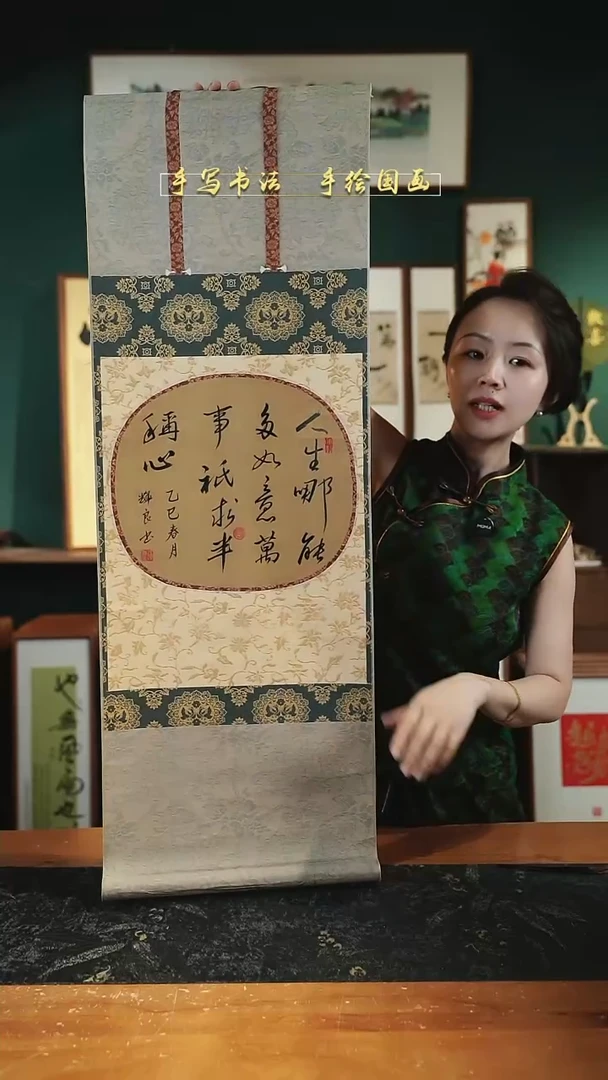 手写书法 手绘国画
人生哪能
多如意萬
事祇求半
稱心
乙巳春月
輝良书